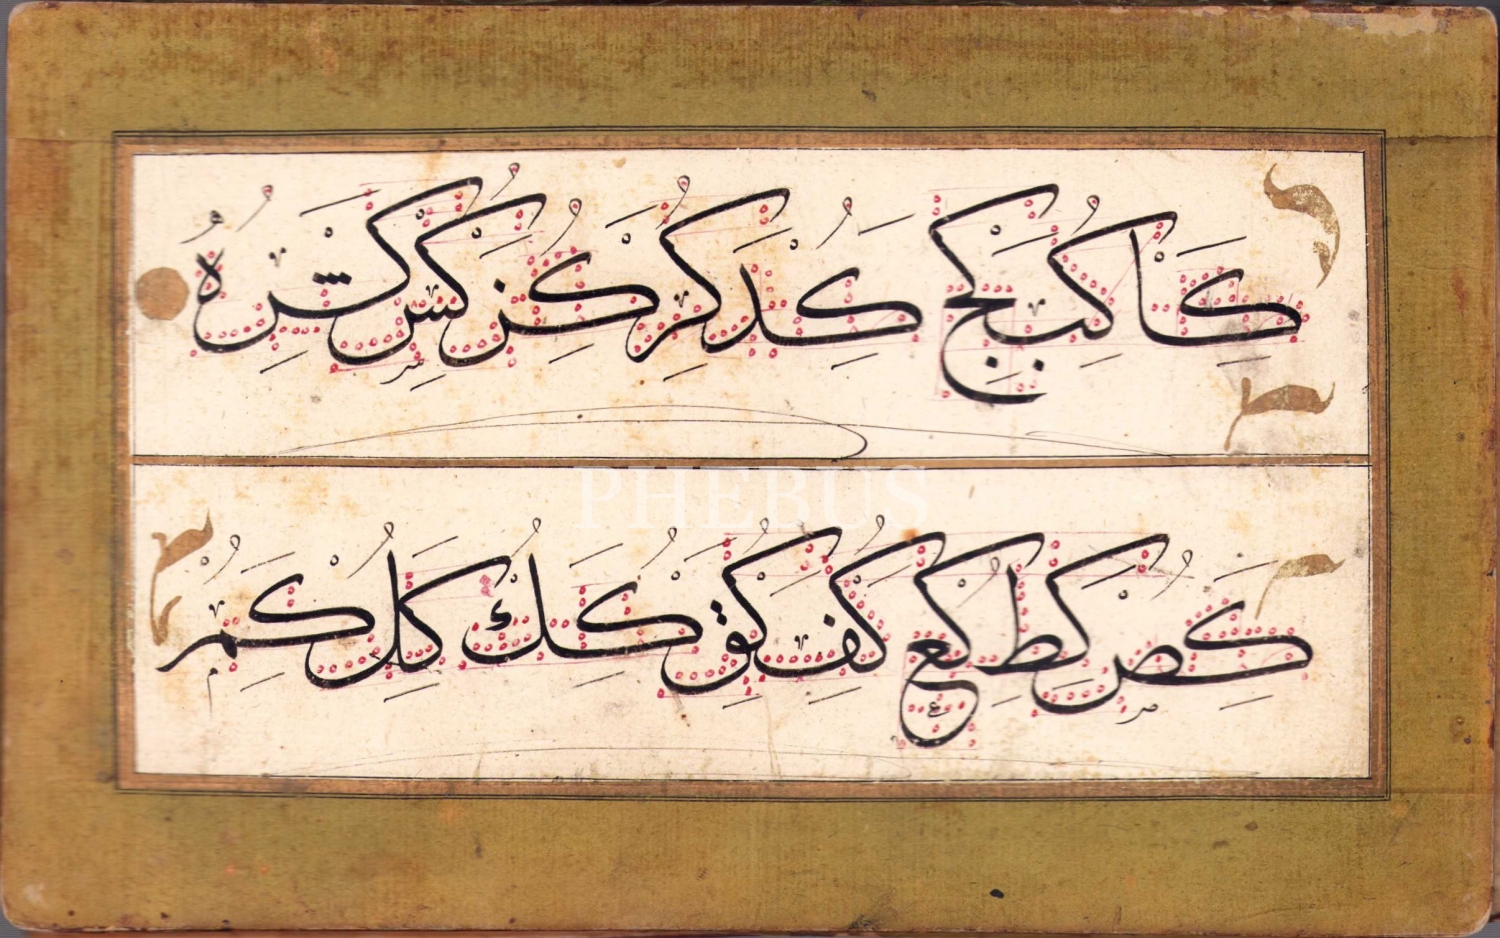 كا كب كج كد كر كز كس كش كره
PHEBUS
كص كط كع كف كق كك كل كم